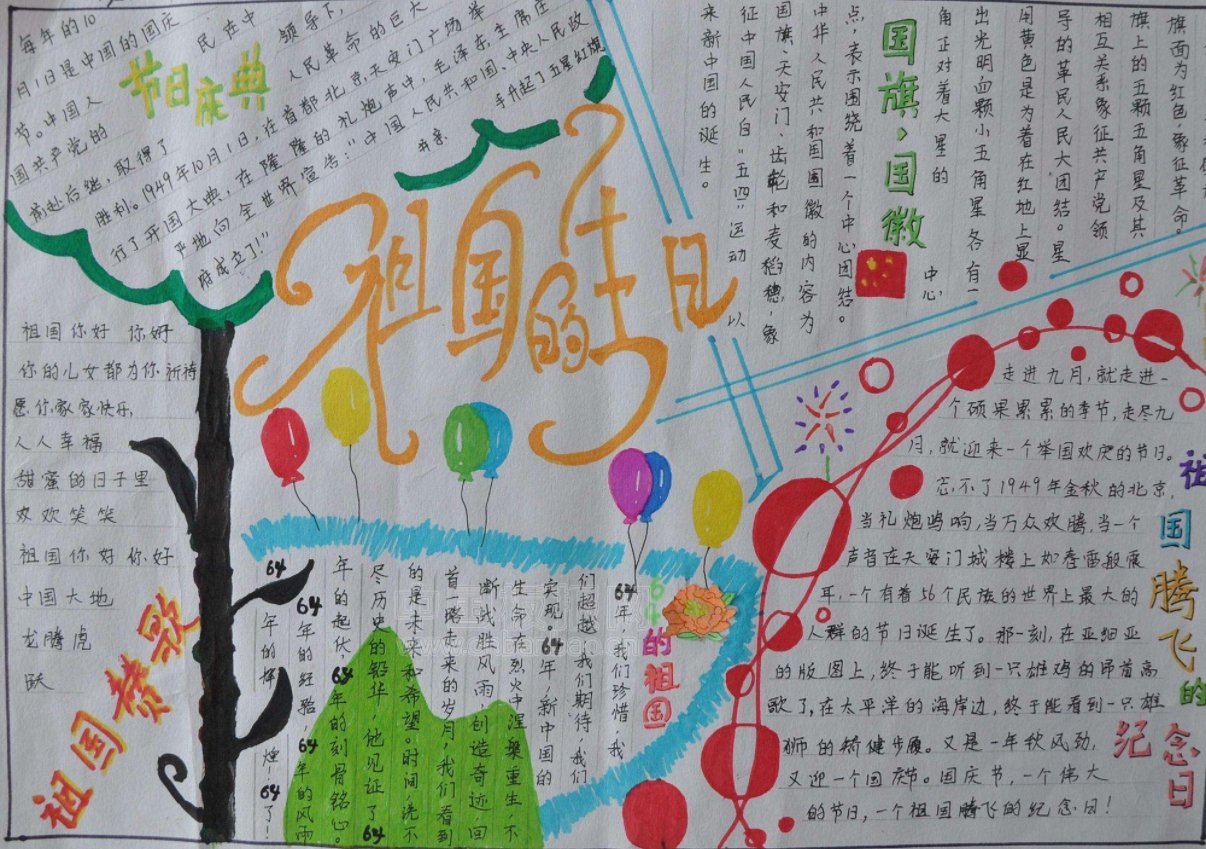 节日庆典
每年的10
月1日是中国的国庆
节。中国人
民在中
国共产党的
领导下,
前赴后继,取得了
人民革命的巨大
胜利。1949年10月1日,在首都北京天安门广场举
行了开国大典,在隆隆的礼炮声中,毛泽东主席庄
严地向全世界宣告:"中国人民共和国、中央人民政
府成立了!"
并亲
手升起了五星红旗
祖国的生日
国旗、国徽
旗面为红色,象征革命。
旗上的五颗五角星及其
相互关系象征共产党领
导的革民人民大团结。星
用黄色是为着在红地上显
出光明,四颗小五角星各有一
角正对着大星的
中心
点,表示围绕着一个中心团结。
中华人民共和国国徽的内容为
国旗、天安门、齿轮和麦稻穗,象
征中国人民自"五四"运动
以
来新中国的诞生。
祖国你好 你好
你的儿女都为你祈待
愿你家家快乐,
人人幸福
甜蜜的日子里
欢欢笑笑
祖国你好你好
中国大地
龙腾虎
跃
祖国赞歌
64的祖国
64年,我们珍惜,我
们超越,我们期待,我们
实现。64年,新中国的
生命在烈火中涅槃重生,不
断战胜风雨,创造奇迹,回
首一路走来的岁月,我们看到
的是未来和希望。时间,洗不
尽历史的铅华,他见证了64
年的起伏,64年的刻骨铭心。
64年的经验,64年的风雨
64年的辉煌,64了!
祖国腾飞的纪念日
走进九月,就走进一
个硕果累累的季节,走尽九
月,就迎来一个举国欢庆的节日。
忘不了1949年金秋的北京,
当礼炮鸣响,当万众欢腾,当一个
声音在天安门城楼上如春雷般震
耳,一个有着56个民族的世界上最大的
人群的节日诞生了。那一刻,在亚细亚
的版图上,终于能听到一只雄鸡的昂首高
歌了,在太平洋的海岸边,终于能看到一只雄
狮的矫健步履。又是一年秋风劲,
又迎一个国庆节。国庆节,一个伟大
的节日,一个祖国腾飞的纪念日!